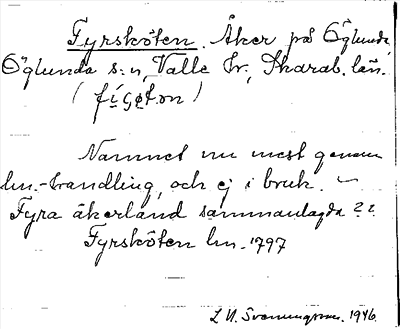 Fyrsköten. Åker på Öglunda,
Öglunda s:n, Valle hr., Skarab. län.
(fýsøt.ən)
Namnet nu mest genom
lm.-handling, och ej i bruk.
Fyra åkerland sammanlagda??
Fyrsköten lm. 1797
L. N. Svanungsson. 1946.